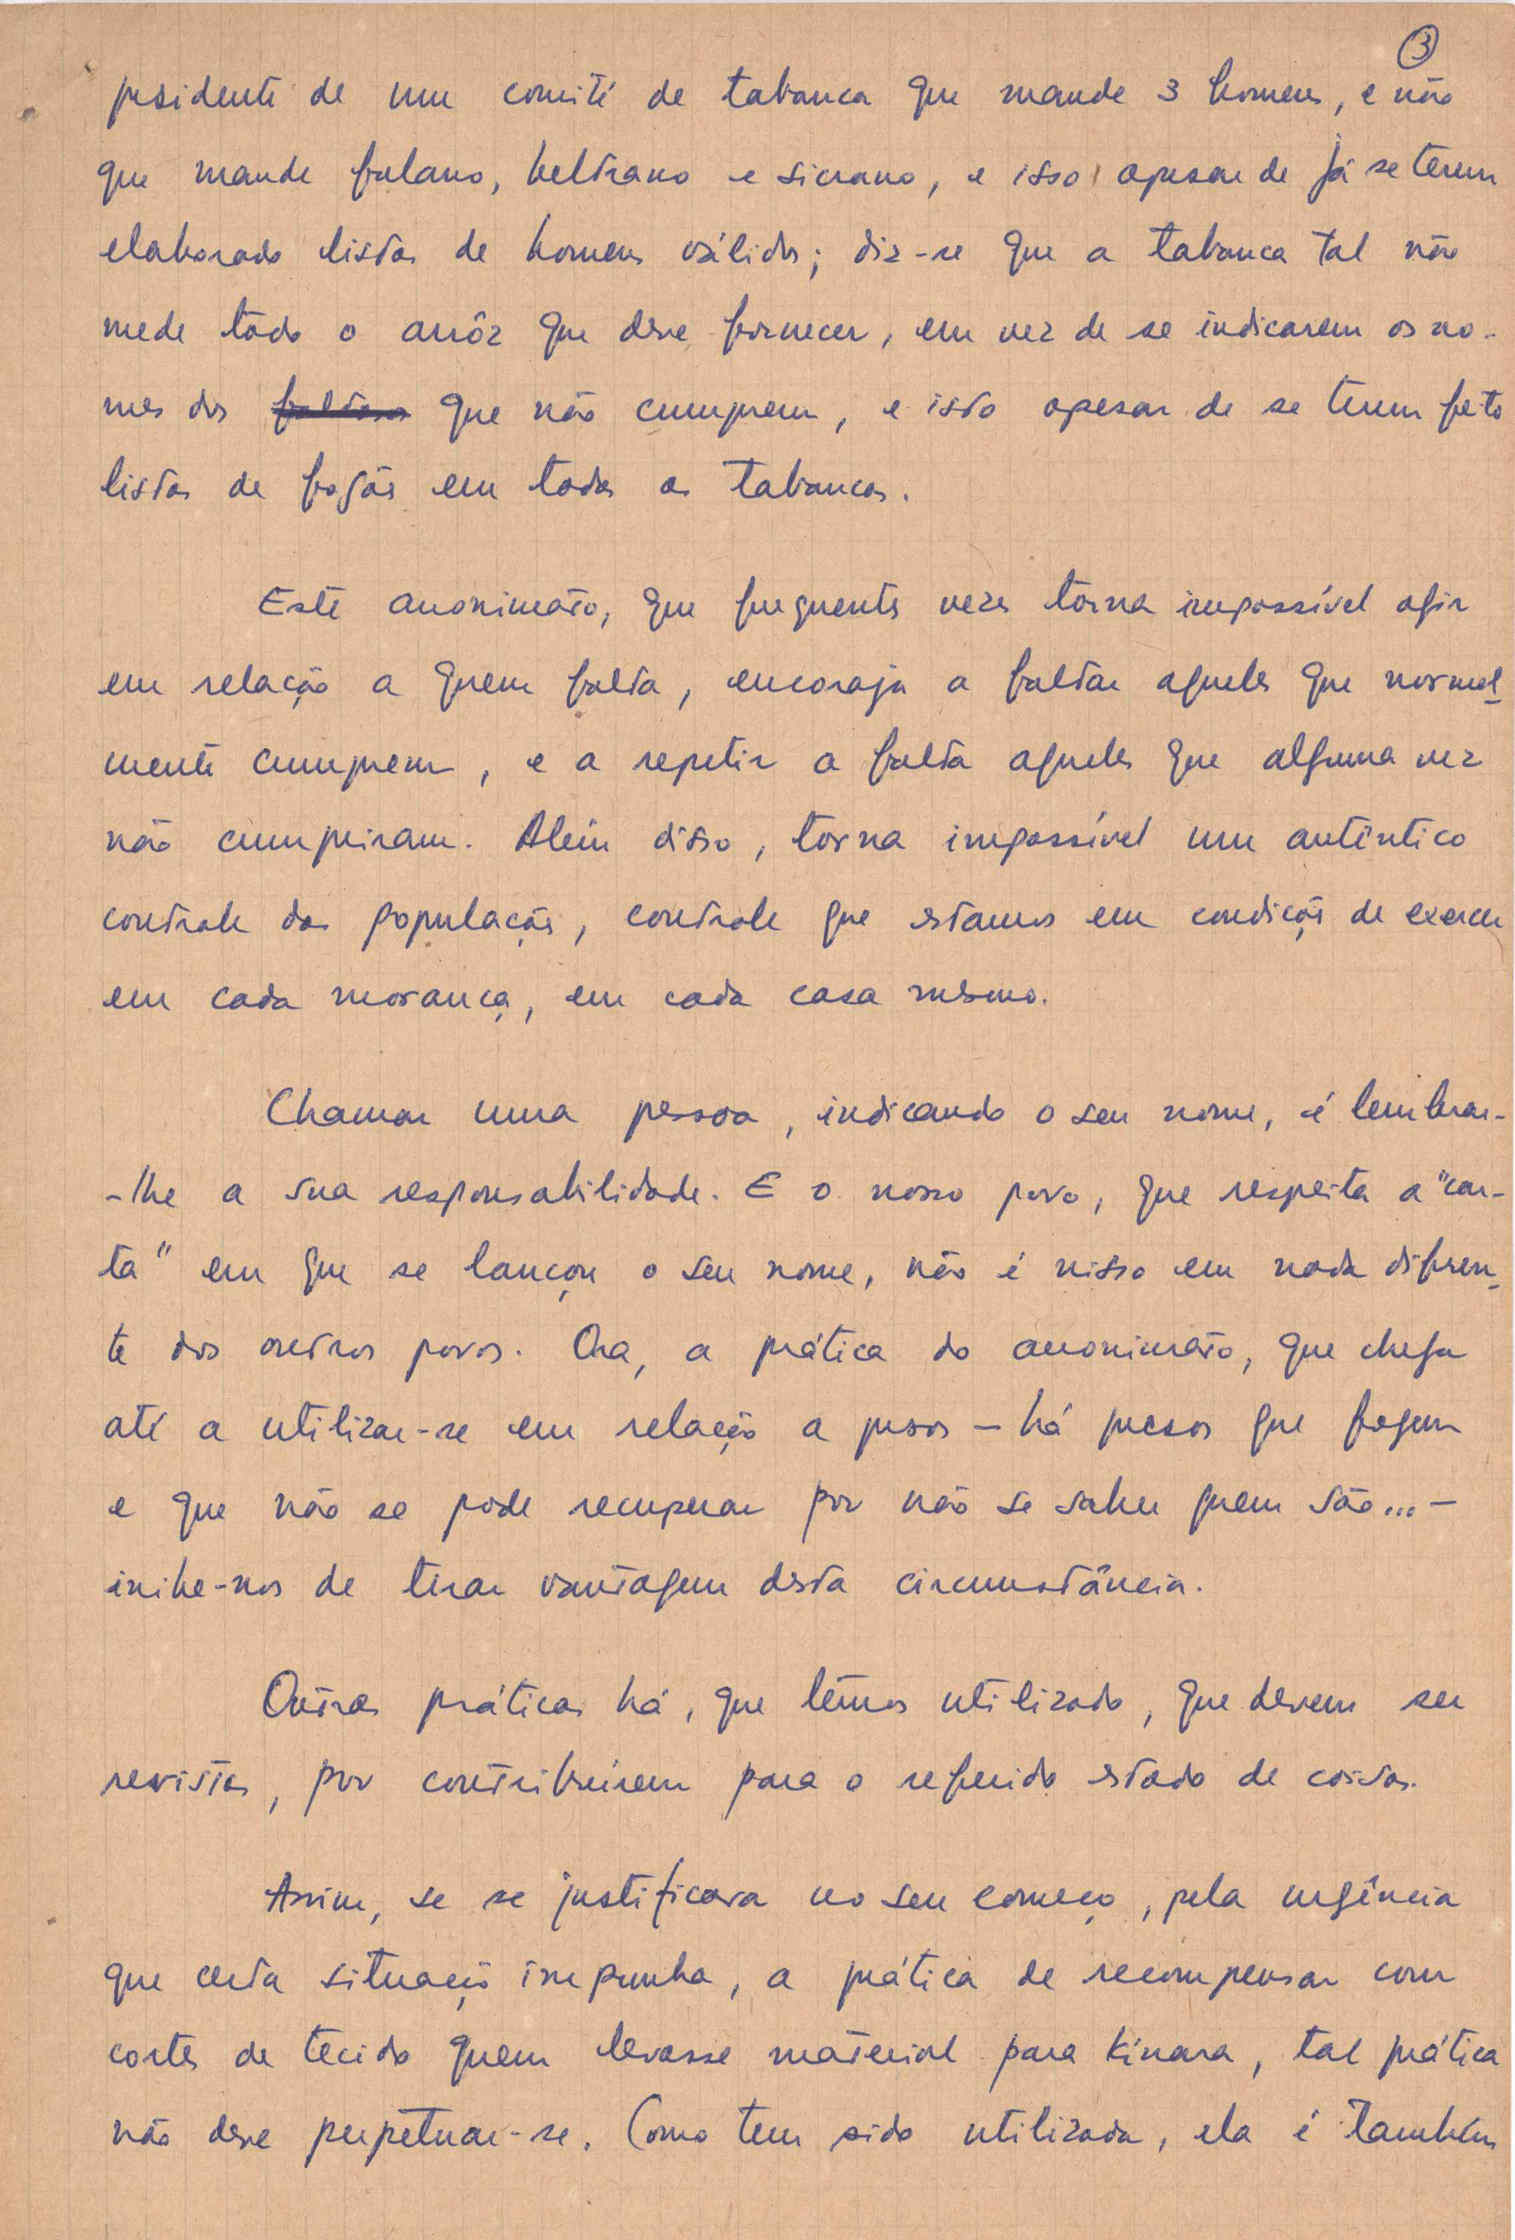 3
presidente de um comité de tabanca que mande 3 homens, e não
que mande fulano, beltrano e sicrano, e isso apesar de já se terem
elaborado listas de homens válidos; diz-se que a tabanca tal não
mede todo o arrôz que deve fornecer, em vez de se indicarem os no-
mes dos que não cumprem, e isto apesar de se terem feito
listas de fogões em todas as tabancas.
Este anonimato, que frequentes vezes torna impossível agir
em relação a quem falta, encoraja a faltar aqueles que normal-
mente cumprem, e a repetir a falta aqueles que alguma vez
não cumpriram. Além disso, torna impossível um autêntico
controle das populações, controle que estamos em condições de exercer
em cada morança, em cada casa mesmo.
Chamar uma pessoa, indicando o seu nome, é lembrar-
-lhe a sua responsabilidade. E o nosso povo, que respeita a "car-
ta" em que se lançou o seu nome, não é nisso em nada diferen-
te dos outros povos. Ora, a prática do anonimato, que chega
até a utilizar-se em relação a presos – há presos que fogem
e que não se pode recuperar por não se saber quem são... –
inibe-nos de tirar vantagem desta circunstância.
Outras práticas há, que têmos utilizado, que devem ser
revistas, por contribuirem para o referido estado de coisas.
Assim, se se justificava no seu começo, pela urgência
que certa situação impunha, a prática de recompensar com
cortes de tecido quem levasse material para Kínara, tal prática
não deve perpetuar-se. Como tem sido utilizada, ela é também